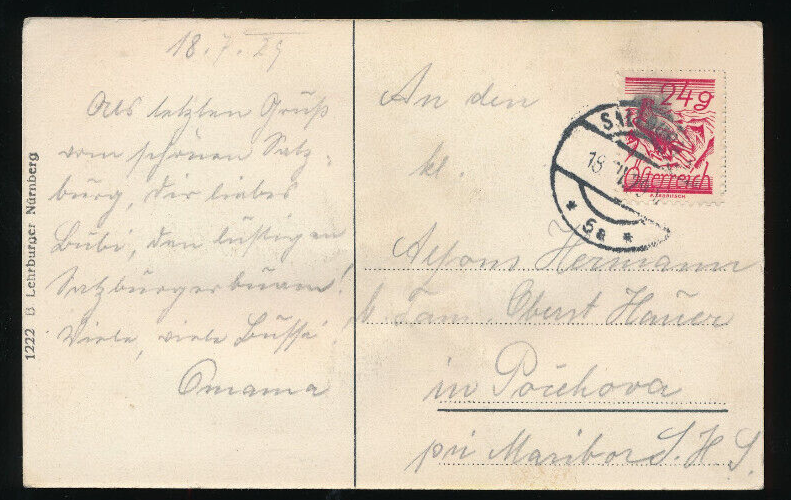 18.7.29
Als letzten Gruß
vom schönen Salz-
burg, dir liebes
Bubi, den lustigen
Salzburgerbuam!
Viele, viele Bussi!
Omama
1222 B Lehrburger Nürnberg
An den
kl.
Alfons Hermann
b. Fam. Oberst Hauer
in Počehova
pri Maribor S.H.S.
24g
Österreich
18
* 6a *